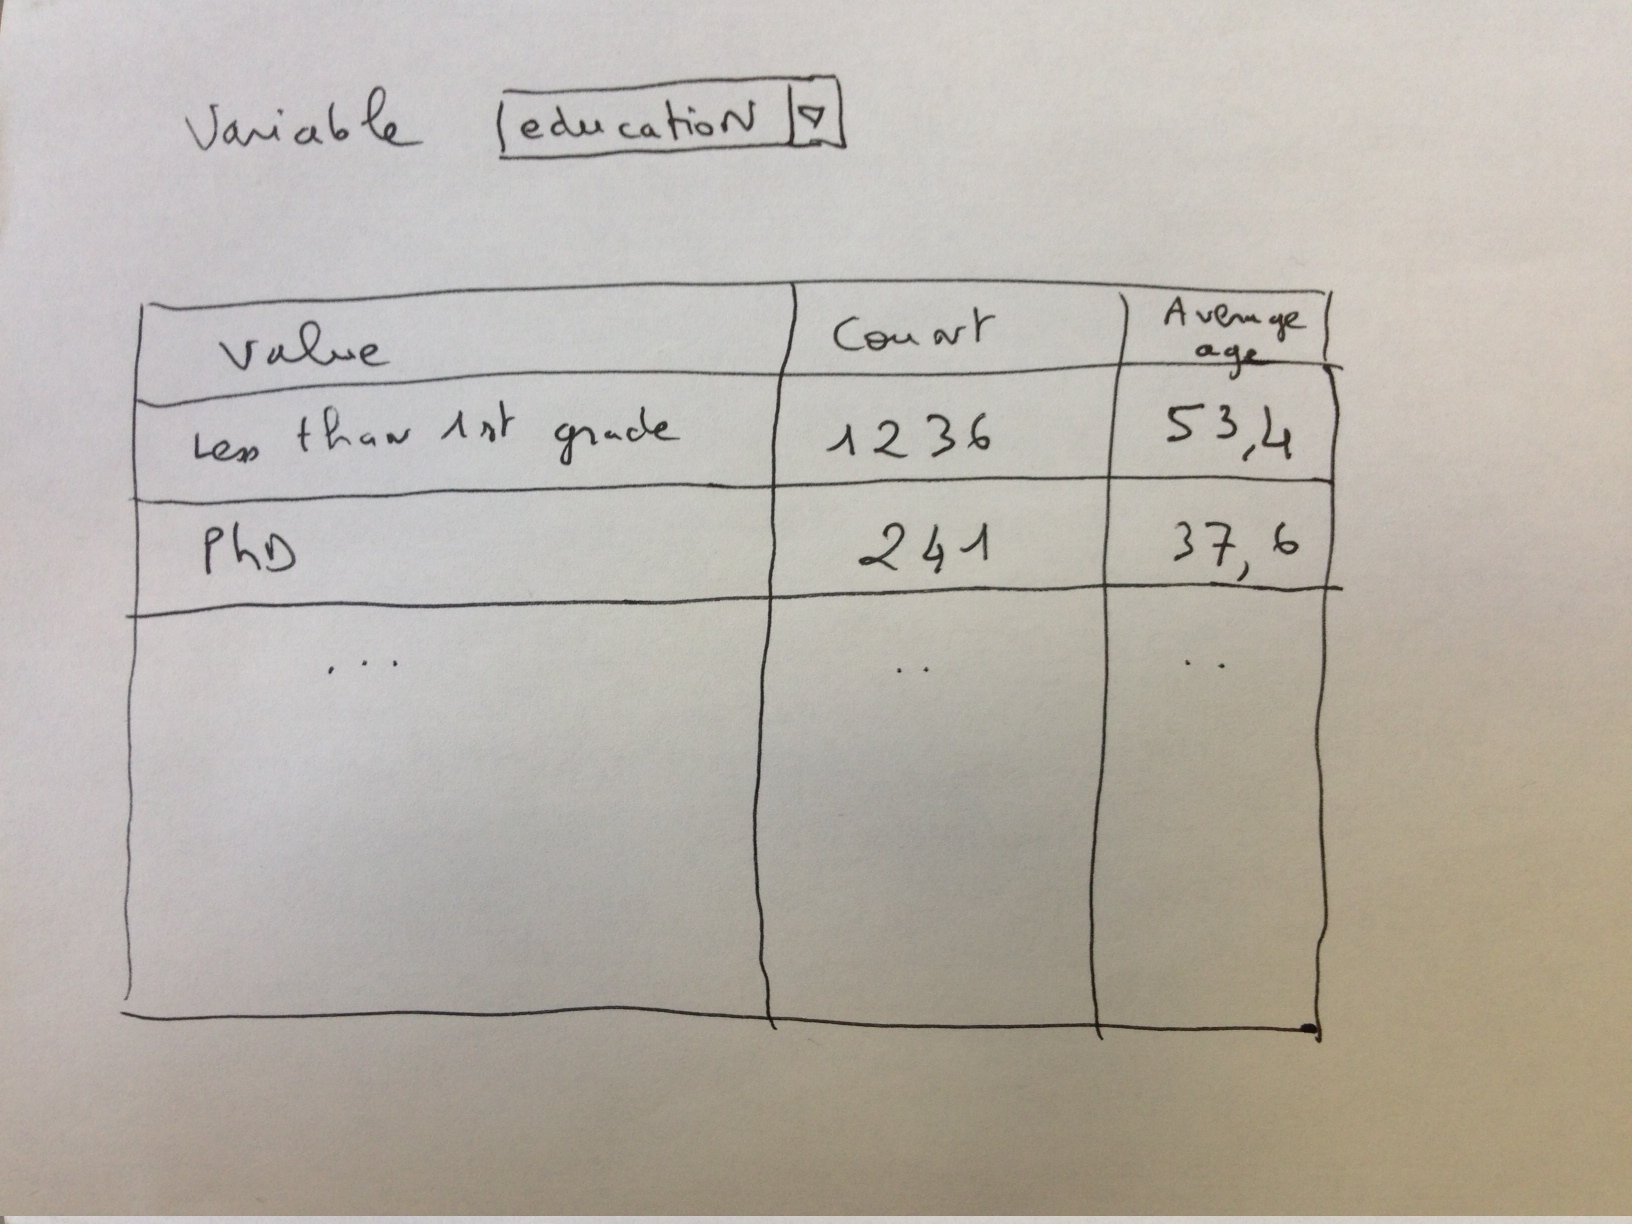 Variable education
Value Count Average age
Less than 1st grade 1236 53,4
PhD 241 37,6
... .. ..